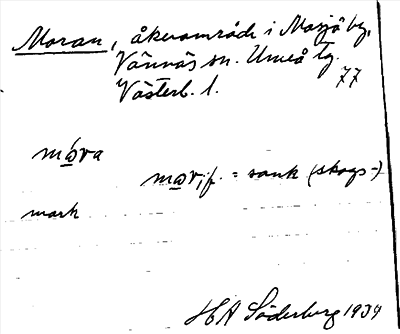 Moran, åkerområde i Mosjö by,
Vännäs sn. Umeå tg.
Västerb. l. 77
mo̲ra
mo̲r, f. = sank (skogs-)
mark
HA Söderberg 1934